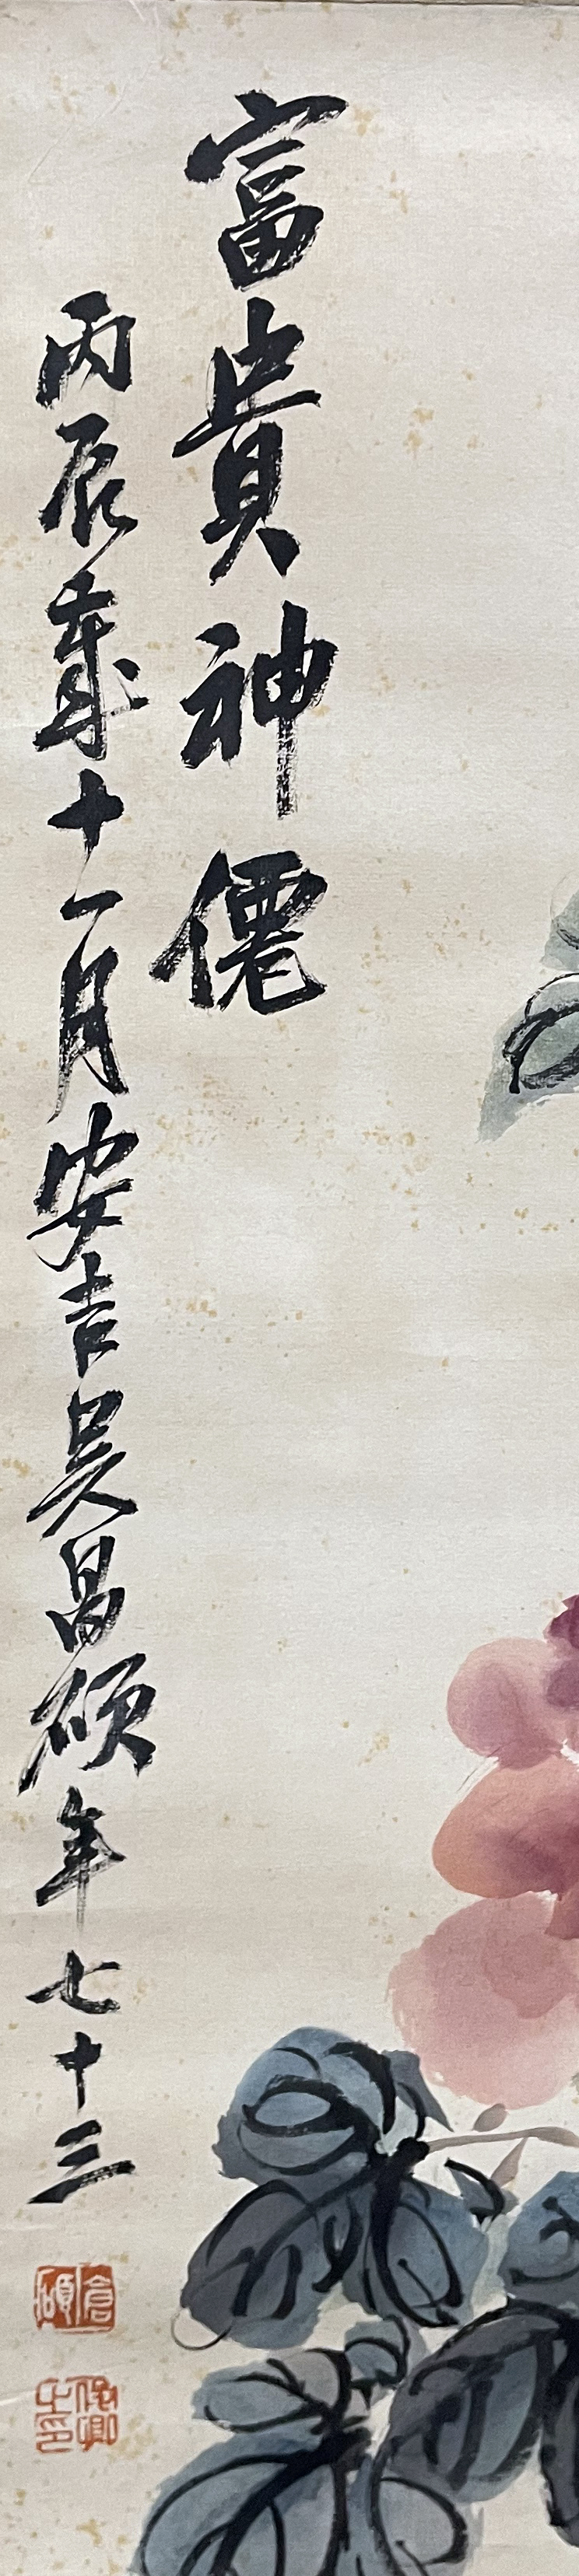 富貴神僊
丙辰歲十一月安吉吳昌碩年七十三
倉碩
俊卿之印